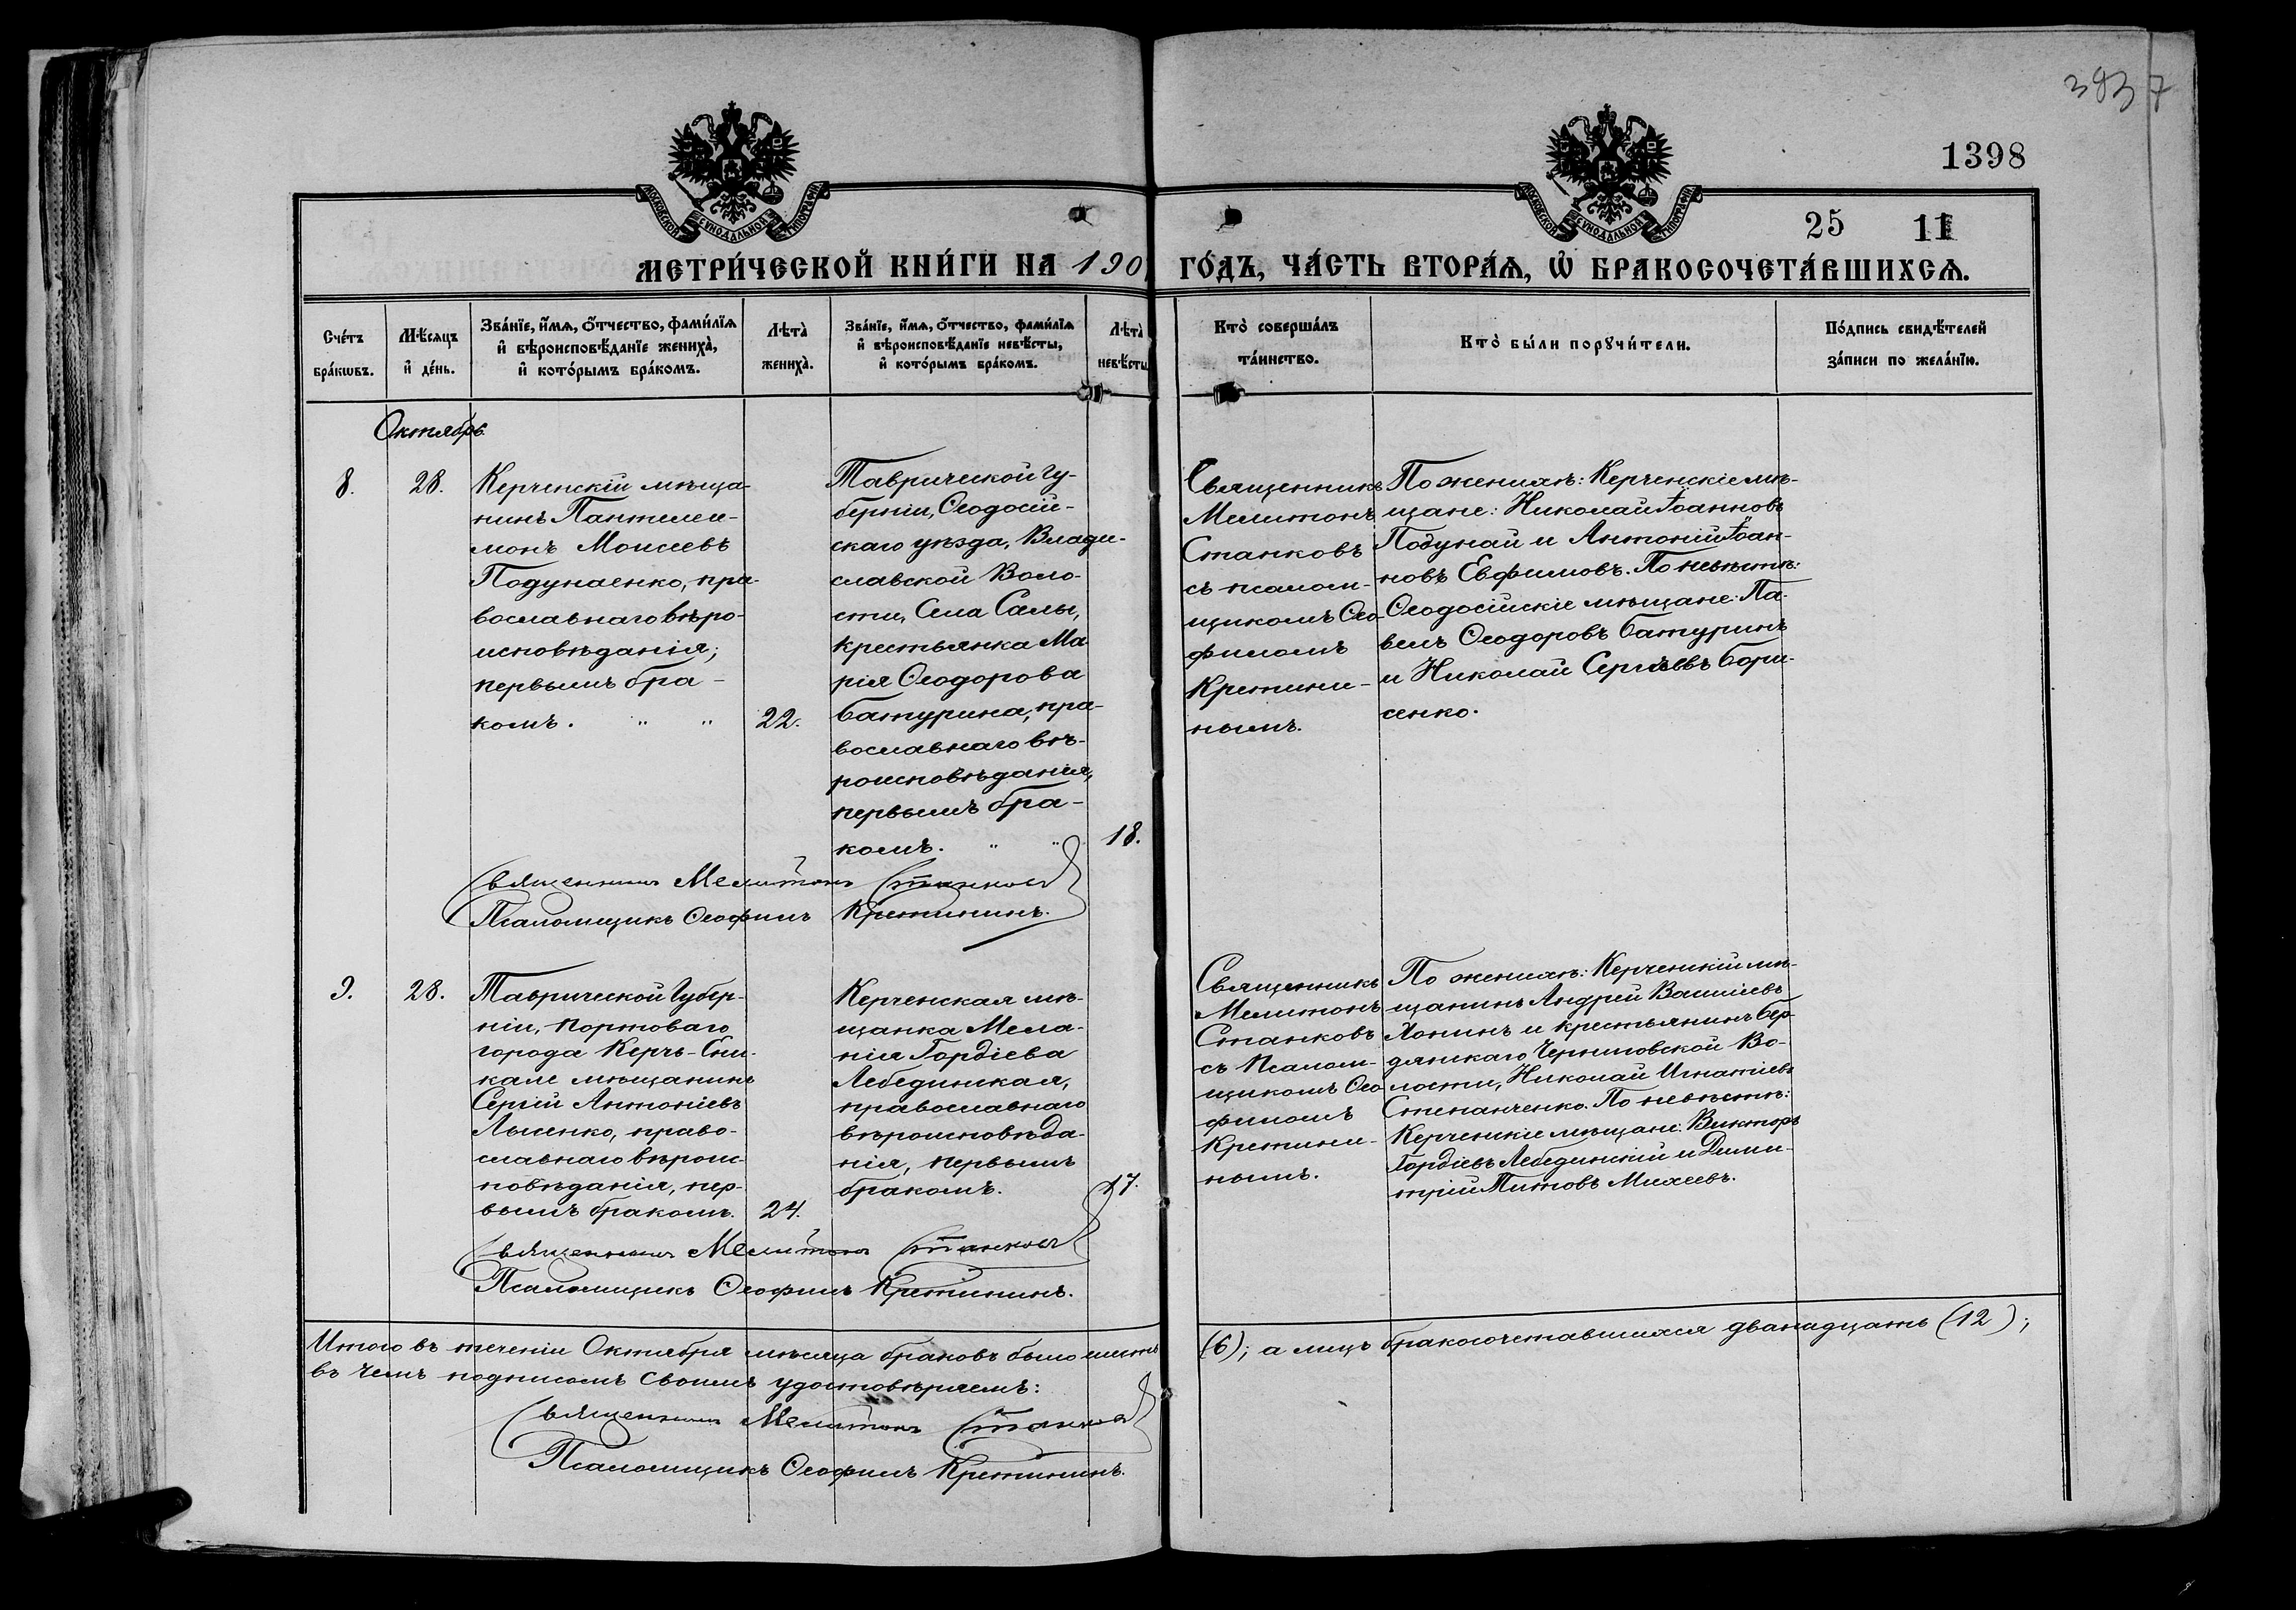 3937
1398
25 11
МОСКОВСКОЙ СѴНОДАЛЬНОЙ ТИПОГРАФІИ
МОСКОВСКОЙ СѴНОДАЛЬНОЙ ТИПОГРАФІИ
МЕТРИ́ЧЕСКОЙ КНИ́ГИ НА 190
ГО́ДЪ, ЧА́СТЬ ВТОРА́Ѧ, Ѡ҆ БРАКОСОЧЕТА́ВШИХСѦ.
Сче́тъ бра́кωвъ.
Мѣ́сяцъ и҆ де́нь.
Зва́нїе, и҆́мѧ, ѻ҆́тчество, фами́лїѧ и҆ вѣроисповѣ́данїе жениха̀, и҆ кото́рымъ бра́комъ.
Лѣта̀ жениха̀.
Зва́нїе, и҆́мѧ, ѻ҆́тчество, фами́лїѧ и҆ вѣроисповѣ́данїе невѣ́сты, и҆ кото́рымъ бра́комъ.
Лѣта̀ невѣ́сты
Кто̀ соверша́лъ та́инство.
Кто̀ бы́ли порꙋчи́тели.
По́дпись свидѣ́телей за́писи по жела́нїю.
Октябрь.
8.
28.
Керченскій мѣща-
нинъ Пантелеи-
монъ Моисеевъ
Подунаенко, пра-
вославнаго вѣро-
исповѣданія;
первымъ бра-
комъ. " "
22.
Таврической гу-
берніи, Ѳеодосій-
скаго уѣзда, Влади-
славской Воло-
сти, Села Салы,
крестьянка Ма-
рія Ѳеодорова
Батурина, пра-
вославнаго вѣ-
роисповѣданія,
первымъ бра-
комъ. " "
18.
Священникъ
Мелитонъ
Станковъ
съ псалом-
щикомъ Ѳео-
филомъ
Кретини-
нымъ.
По женихѣ: Керченскіе мѣ-
щане: Николай Іоанновъ
Подунай и Антоній Іоан-
новъ Евфимовъ. По невѣстѣ:
Ѳеодосійскіе мѣщане: Па-
велъ Ѳеодоровъ Батуринъ
и Николай Сергѣевъ Бори-
сенко.
Священникъ Мелитонъ Станковъ
Псаломщикъ Ѳеофилъ Кретининъ.
9.
28.
Таврической Губер-
ніи, портоваго
города Керчь-Ени-
кале мѣщанинъ
Сергій Антоніевъ
Лысенко, право-
славнаго вѣроис-
повѣданія, пер-
вымъ бракомъ.
24.
Керченская мѣ-
щанка Мела-
нія Гордіева
Лебединская,
православнаго
вѣроисповѣда-
нія, первымъ
бракомъ.
17.
Священникъ
Мелитонъ
Станковъ
съ Псалом-
щикомъ Ѳео-
филомъ
Кретини-
нымъ.
По женихѣ: Керченскій мѣ-
щанинъ Андрей Васильевъ
Хонинъ и крестьянинъ Бер-
дянскаго Черниговской Во-
лости, Николай Игнатіевъ
Степанченко. По невѣстѣ:
Керченскіе мѣщане: Викторъ
Гордіевъ Лебединскій и Дими-
трій Титовъ Михеевъ.
Священникъ Мелитонъ Станковъ
Псаломщикъ Ѳеофилъ Кретининъ.
Итого въ теченіи Октября мѣсяца браковъ было шесть
(6); а лицъ бракосочетавшихся двѣнадцать (12);
въ чемъ подписомъ своимъ удостовѣряемъ:
Священникъ Мелитонъ Станковъ
Псаломщикъ Ѳеофилъ Кретининъ.